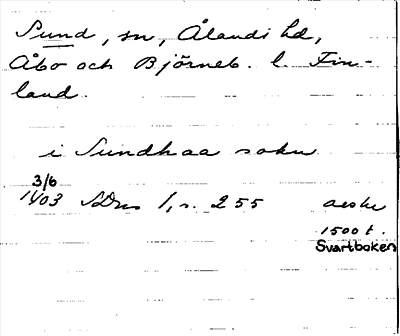 Sund, sn, Ålands hd,
Åbo och Björneb. l. Fin-
land.
i Sundhaa sokn
3/6
1403 SDns 1, s. 255 avskr
1500 t.
Svartboken